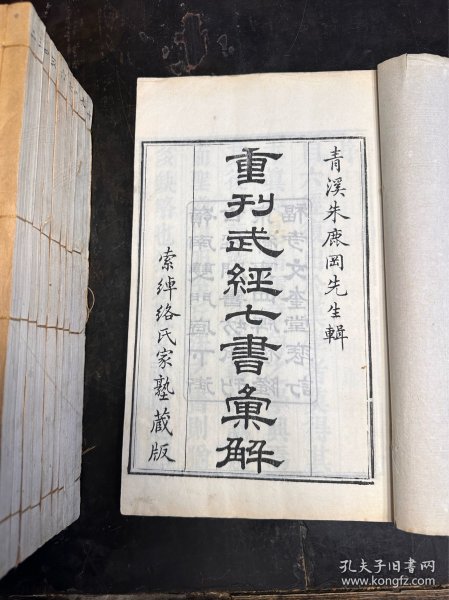 青溪朱鹿岡先生輯
重刊武經七書彙解
索綽絡氏家塾藏版
孔夫子旧书网
www.kongfz.com